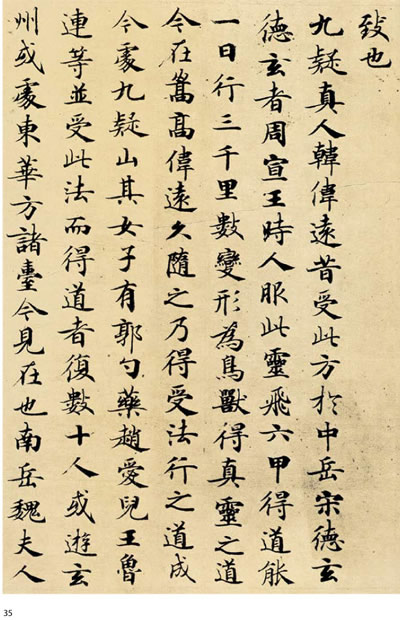 致也
九疑真人韓偉遠昔受此方於中岳宋德玄
德玄者周宣王時人服此靈飛六甲得道能
一日行三千里數變形為鳥獸得真靈之道
今在嵩高偉遠久隨之乃得受法行之道成
今處九疑山其女子有郭勺藥趙愛兒王魯
連等並受此法而得道者復數十人或遊玄
州或處東華方諸臺今見在也南岳魏夫人
35